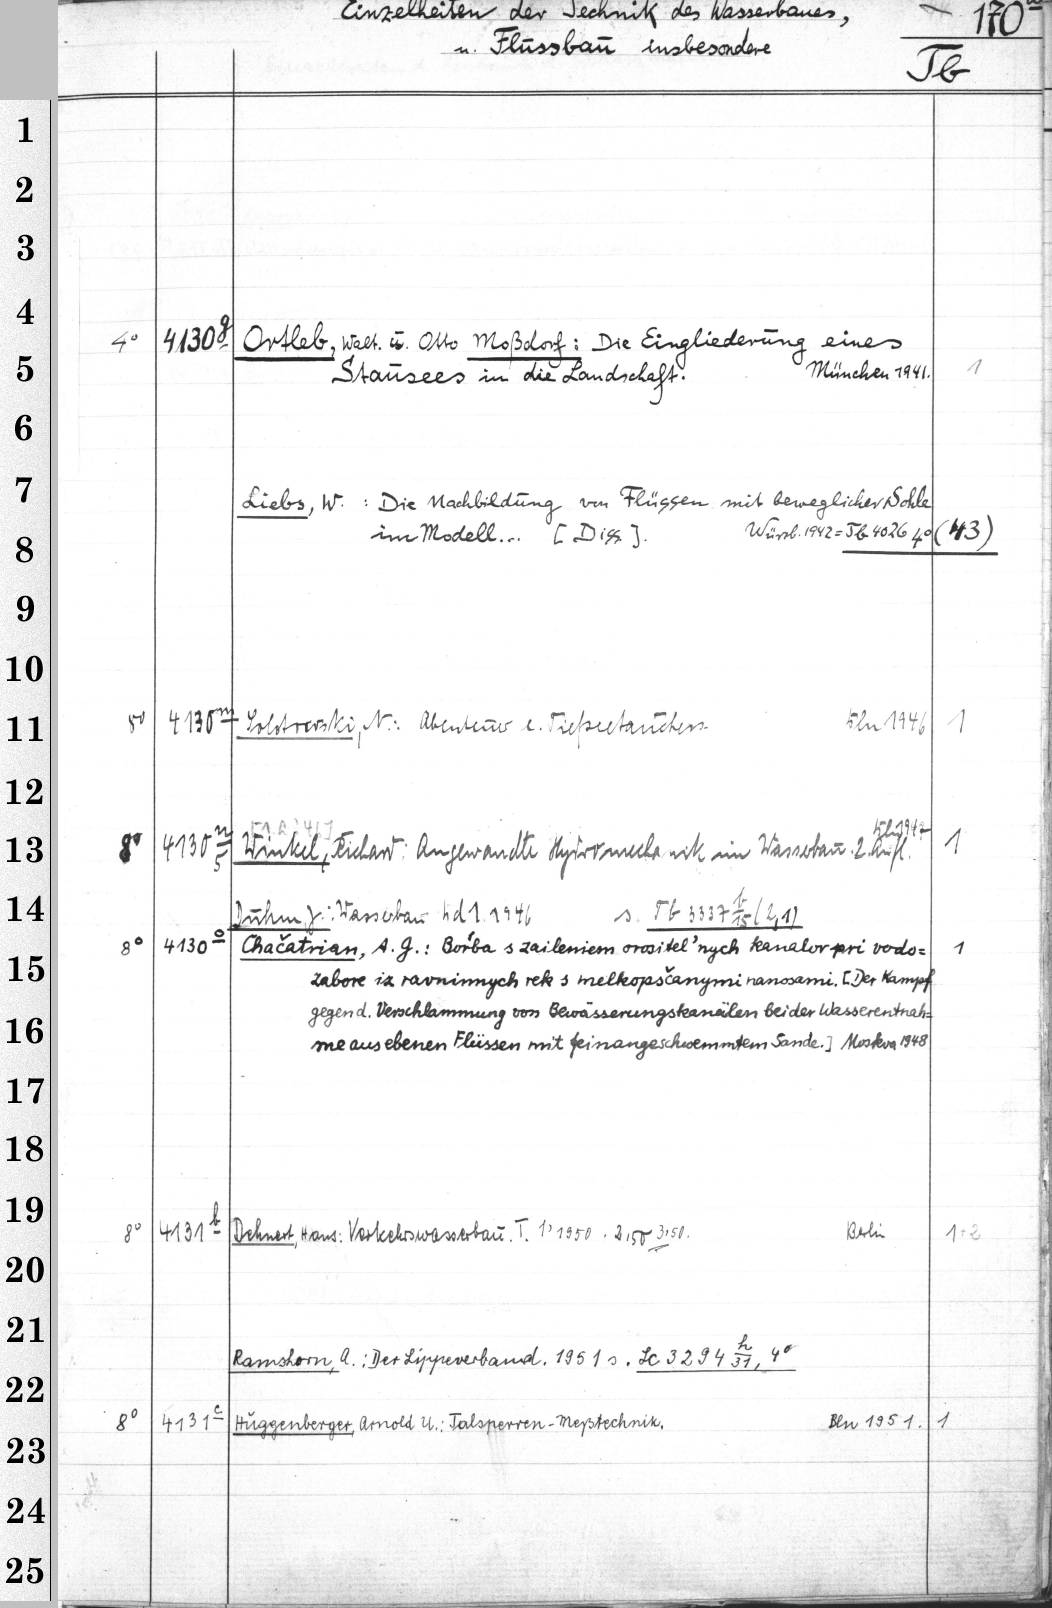 Einzelheiten der Technik des Wasserbaues, 170
u. Flussbau insbesondere
Tb
1
2
3
4
4° 4130 g Ortleb, Walt. u. Otto Moßdorf: Die Eingliederung eines
5 Stausees in die Landschaft. München 1941. 1
6
7 Liebs, W. : Die Nachbildung von Flüssen mit beweglicher Sohle
8 im Modell... [Diss]. Würzb. 1942 = Tb 4026 4° (43)
9
10
11 4130 m N.: Abenteuer e. Tiefseetauchers Bln 1946 1
12
[1.A. 41] Bln 1947
13 8° 4130 n/5 Winkel, Richard: Angewandte Hydromechanik im Wasserbau. 2. Aufl. 1
14 Duhm, J.: Wasserbau Bd 1. 1946 s. Tb 3337 b/15 (2,1)
8° 4130 o Chačatrian, A. G.: Bor'ba s zaileniem orositel'nych kanalov pri vodo= 1
15 zabore iz ravninnych rek s melkopsčanymi nanosami. [Der Kampf
gegen d. Verschlammung von Bewässerungskanälen bei der Wasserentnah=
16 me aus ebenen Flüssen mit feinangeschwemmtem Sande.] Moskva 1948
17
18
19 8° 4131 b Dehnert, Hans: Verkehrswasserbau. T. 1, 1950. 2,50 3,50. Berlin 1+2
20
21
Ramshorn, A.: Der Lippeverband. 1951 s. Lc 3294 h/31, 4°
22
8° 4131 c Huggenberger, Arnold U.: Talsperren-Meßtechnik. Bln 1951. 1
23
24
25